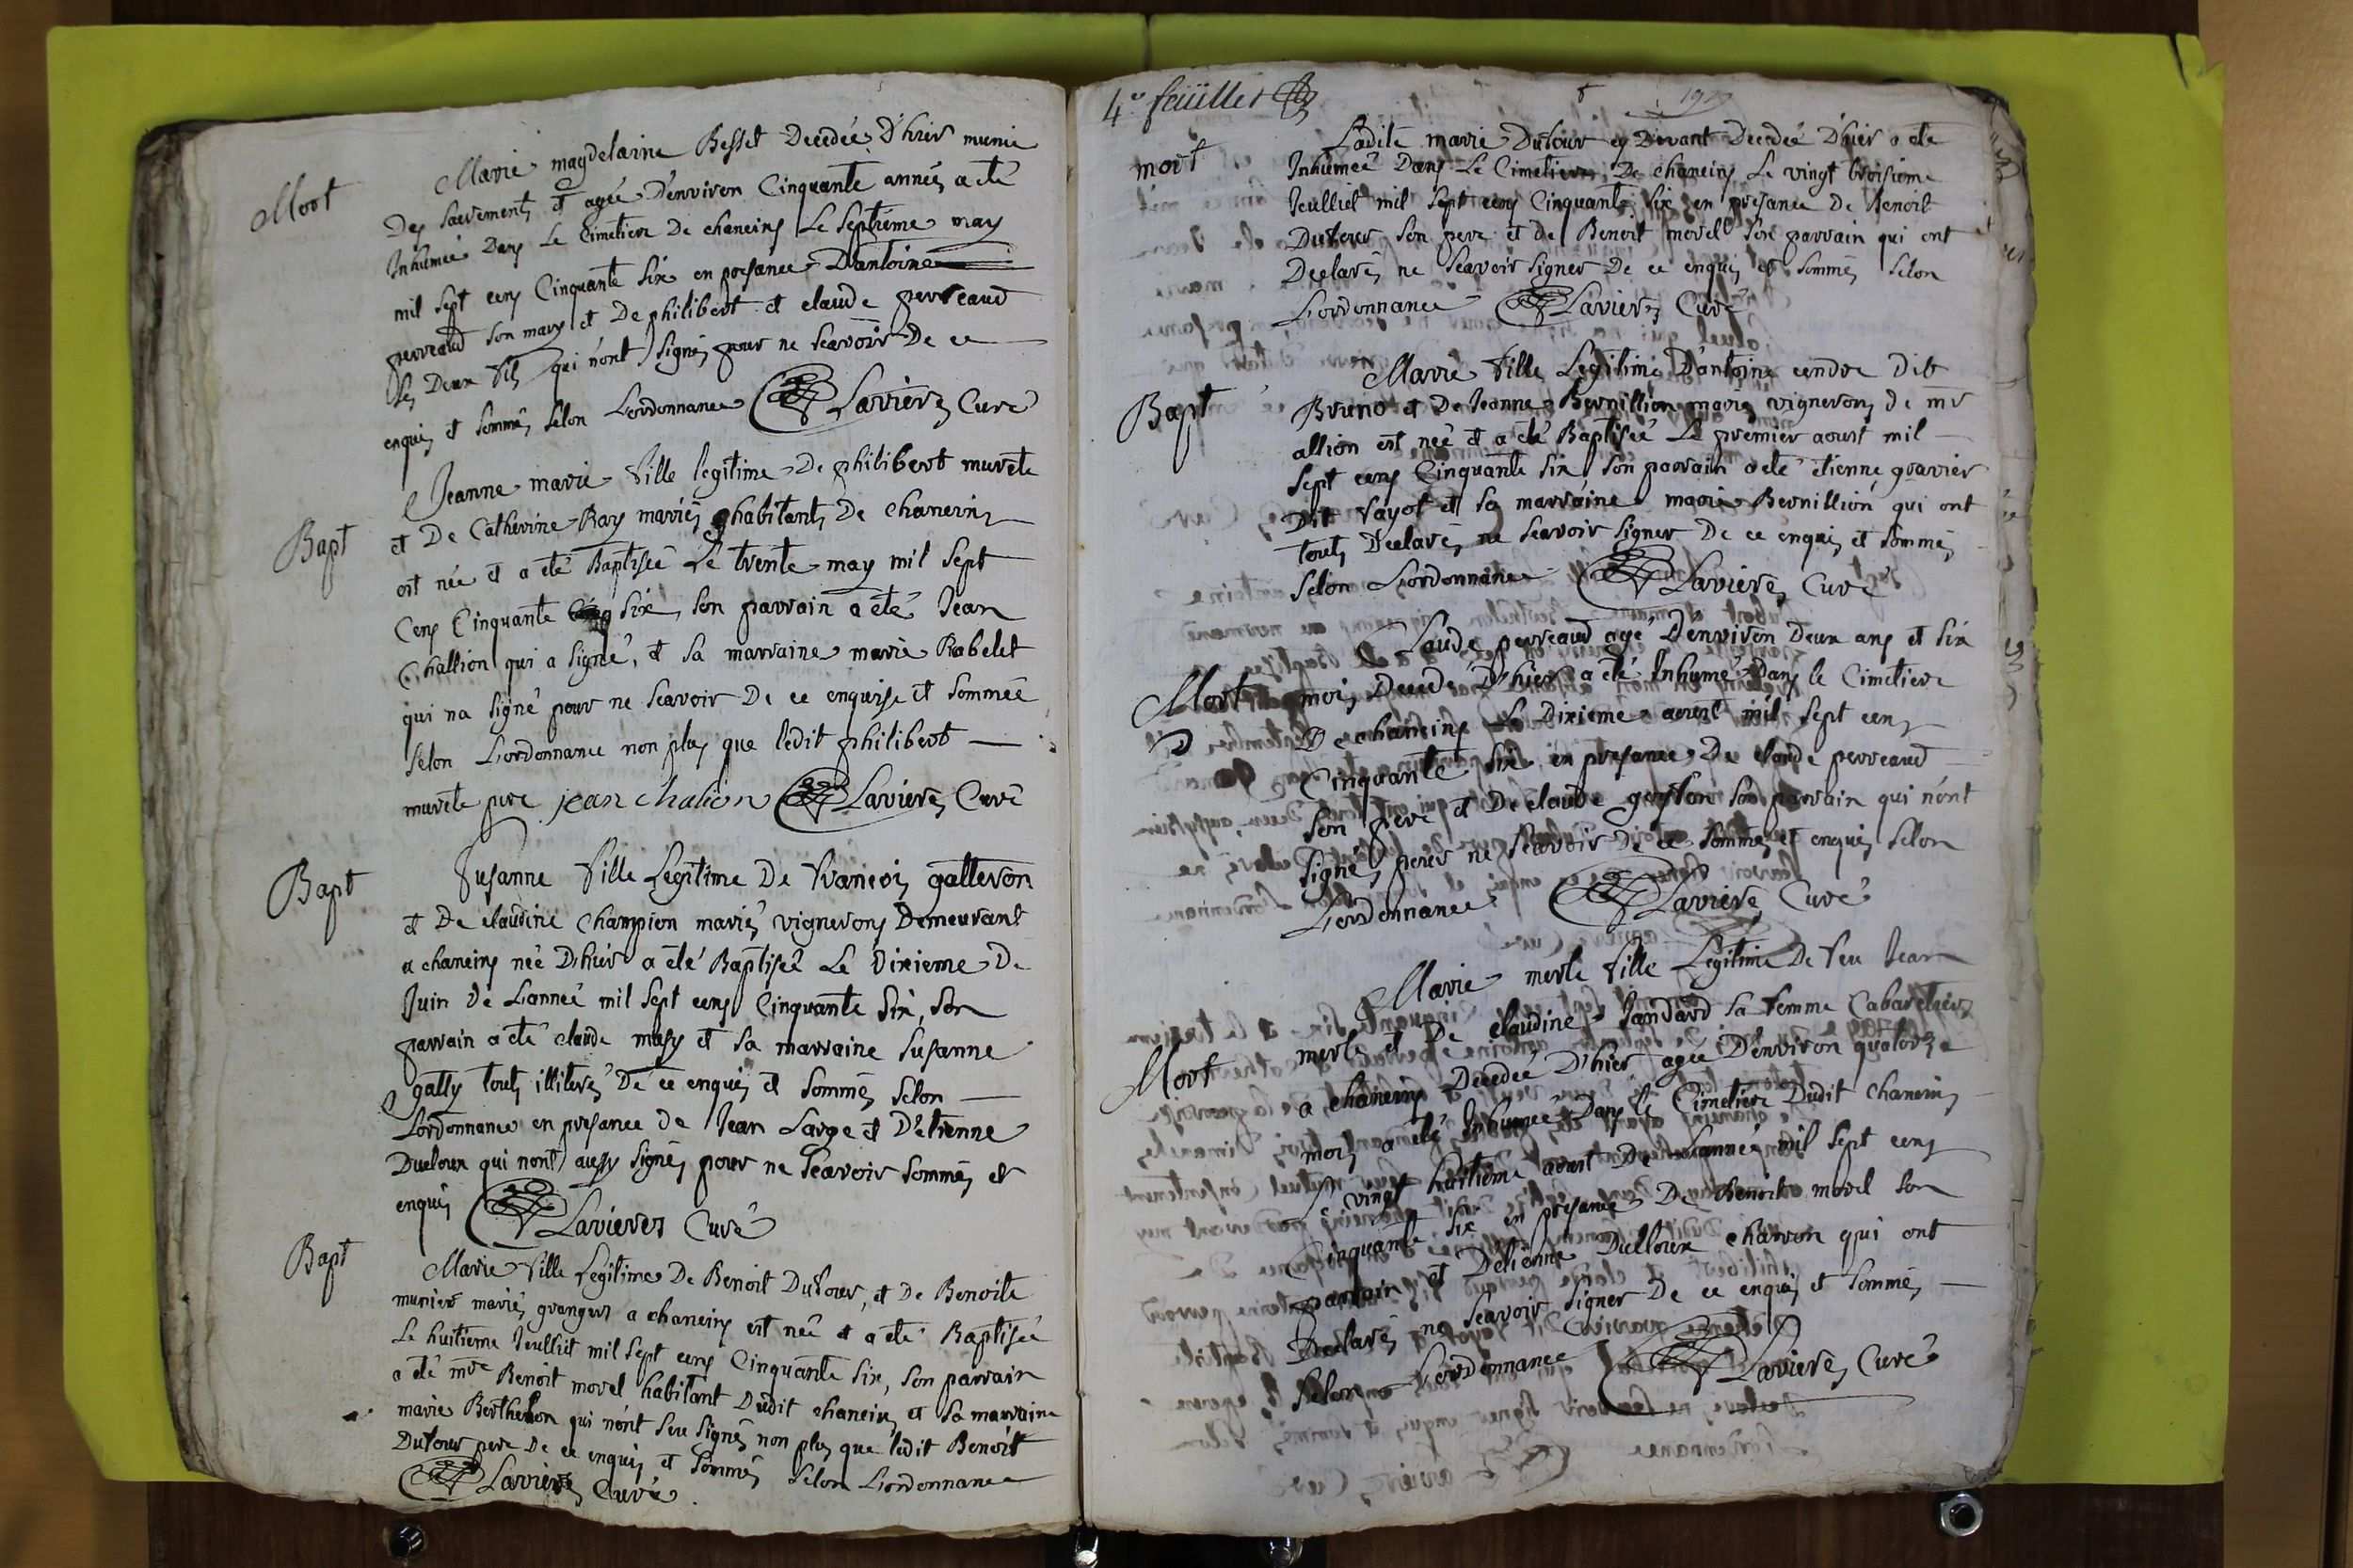 Mort
Marie magdelaine Besset Decedée D'hier munie
Des sacrements et agée D'environ Cinquante années a été
Inhumée Dans Le Cimetiere De chaneins Le septieme may
mil sept cens Cinquante six en presance D'antoine
perreaud son mary et De philibert et claude perreaud
ses Deux fils qui n'ont signés pour ne scavoir De ce
enquis et sommés selon L'ordonnance Laviere Curé
Bapt
Jeanne marie fille legitime De philibert murete
et De Catherine Ray mariés habitants De chaneins
est née et a été Baptisée Le trente may mil sept
Cens Cinquante six, son parrain a été Jean
Challion qui a signé, et sa marraine marie Rabelet
qui na signé pour ne scavoir De ce enquise et sommée
selon L'ordonnance non plus que ledit philibert
murete pere jean chalion Laviere Curé
Bapt
Susanne fille Legitime De francois galleron
et De claudine Champion mariés vignerons Demeurant
a chaneins née D'hier a été Baptisée Le Dixieme De
Juin De L'année mil sept cens Cinquante six, son
parrain a été claude et sa marraine Susanne
gally touts illiterés De ce enquis et sommés selon
L'ordonnance en presance De Jean Large et D'etienne
Ducloux qui n'ont aussy signés pour ne scavoir sommés et
enquis Laviere Curé
Bapt
Marie fille Legitime De Benoit Dutour, et De Benoite
munier mariés grangers a chaneins est née et a été Baptisée
Le huitieme Jeulliet mil sept cens Cinquante six, son parrain
a été mre Benoit morel habitant Dudit chaneins et sa marraine
marie Berthelon qui n'ont sceu signés non plus que ledit Benoit
Dutour pere De ce enquis et sommés selon L'ordonnance
Laviere Curé
4e feüillet
mort
Ladite marie Dutour cy Devant Decedée D'hier a été
Inhumée Dans Le Cimetiere De chaneins Le vingt troisieme
Jeulliet mil sept cens Cinquante six en presance De Benoit
Dutour son pere et De Benoit morel son parrain qui ont
Declarés ne scavoir signer De ce enquis et sommés selon
L'ordonnance Laviere Curé
Bapt
Marie fille Legitime D'antoine cendre Dit
Bruno et De Jeanne Bernillion mariés vignerons de mr
allion est née et a été Baptisée Le premier aoust mil
sept cens Cinquante six son parrain a été etienne gravier
Dit fayot et sa marraine marie Bernillion qui ont
touts Declarés ne scavoir signer De ce enquis et sommés
selon L'ordonnance Laviere Curé
Mort
Claude perreaud agé D'environ Deux ans et six
mois Decedé D'hier a été Inhumé Dans le Cimetiere
De chaneins Le Dixieme aoust mil sept cens
Cinquante six en presance De claude perreaud
son pere et De claude son parrain qui n'ont
signés pour ne scavoir De ce sommés et enquis selon
L'ordonnance Laviere Curé
Mort
Marie merle fille Legitime De feu Jean
merle et De claudine Jandard sa femme Cabaretiers
a chaneins Decedée D'hier agée D'environ quatorze
mois a été Inhumée Dans le Cimetiere Dudit chaneins
Le vingt huitieme aoust De L'année mil sept cens
Cinquante six en presance De Benoit morel son
parrain et D'etienne Dulloux charron qui ont
Declarés ne scavoir signer De ce enquis et sommés
selon L'ordonnance Laviere Curé